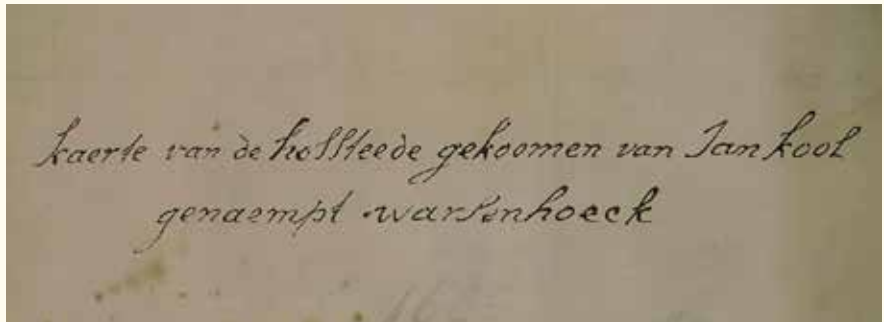 kaerte van de hofsteede gekoomen van Jan kool
genaempt warsenhoeck